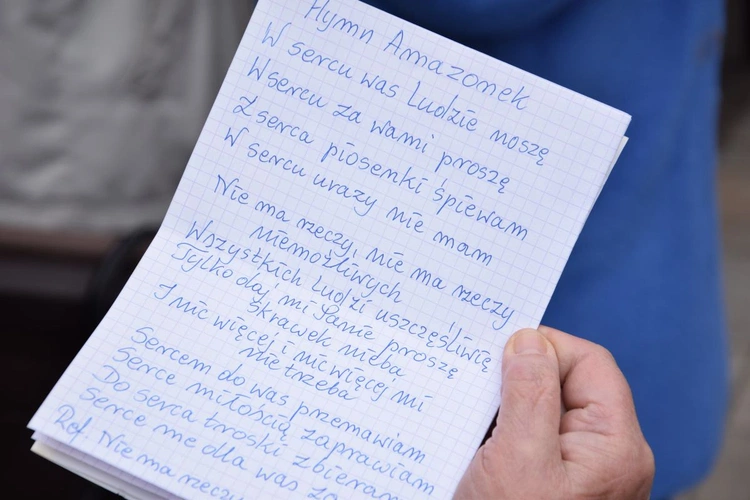 Hymn Amazonek
W sercu was Ludzie noszę
W sercu za wami proszę
Z serca piosenki śpiewam
W sercu urazy nie mam
Nie ma rzeczy, nie ma rzeczy
niemożliwych
Wszystkich ludzi uszczęśliwię
Tylko daj mi Panie proszę
skrawek nieba
I nic więcej i nic więcej mi
nie trzeba
Sercem do was przemawiam
Serce miłością zaprawiam
Do serca troski zbieram
Serce me dla was
Ref. Nie ma rzeczy